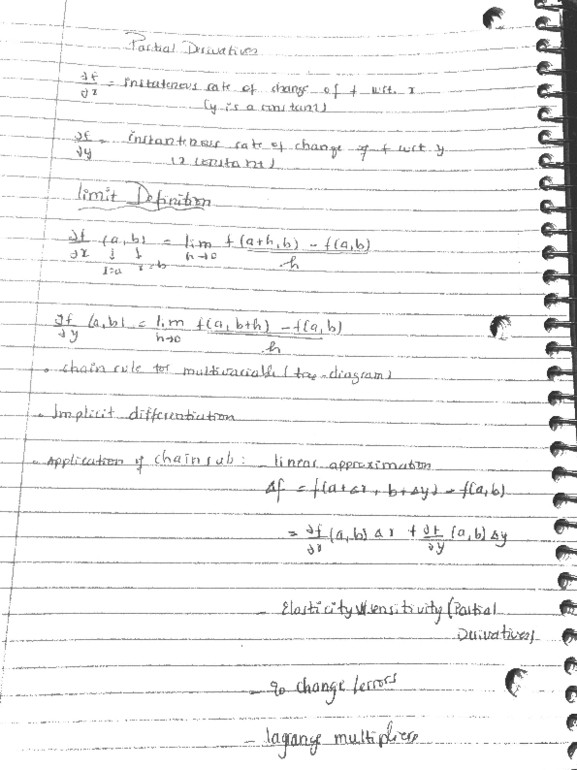 Partial Derivatives
∂f/∂x = instateneous rate of change of f wrt. x
(y is a constant)
∂f/∂y = instanteneous rate of change of f wrt. y
(x constant)
limit Definition
∂f/∂x (a,b) = lim h→0 f(a+h,b) - f(a,b) / h
↓ ↓
x=a
∂f/∂y (a,b) = lim h→0 f(a,b+h) - f(a,b) / h
• chain rule for multivariable (tree-diagram)
• Implicit differentiation
• Application of chain sub: - linear approximation
Δf = f(a+Δx, b+Δy) - f(a,b)
= ∂f/∂x (a,b) Δx + ∂f/∂y (a,b) Δy
- Elasticity sensitivity (Partial
Derivatives)
- % change/errors
- lagrange multipliers